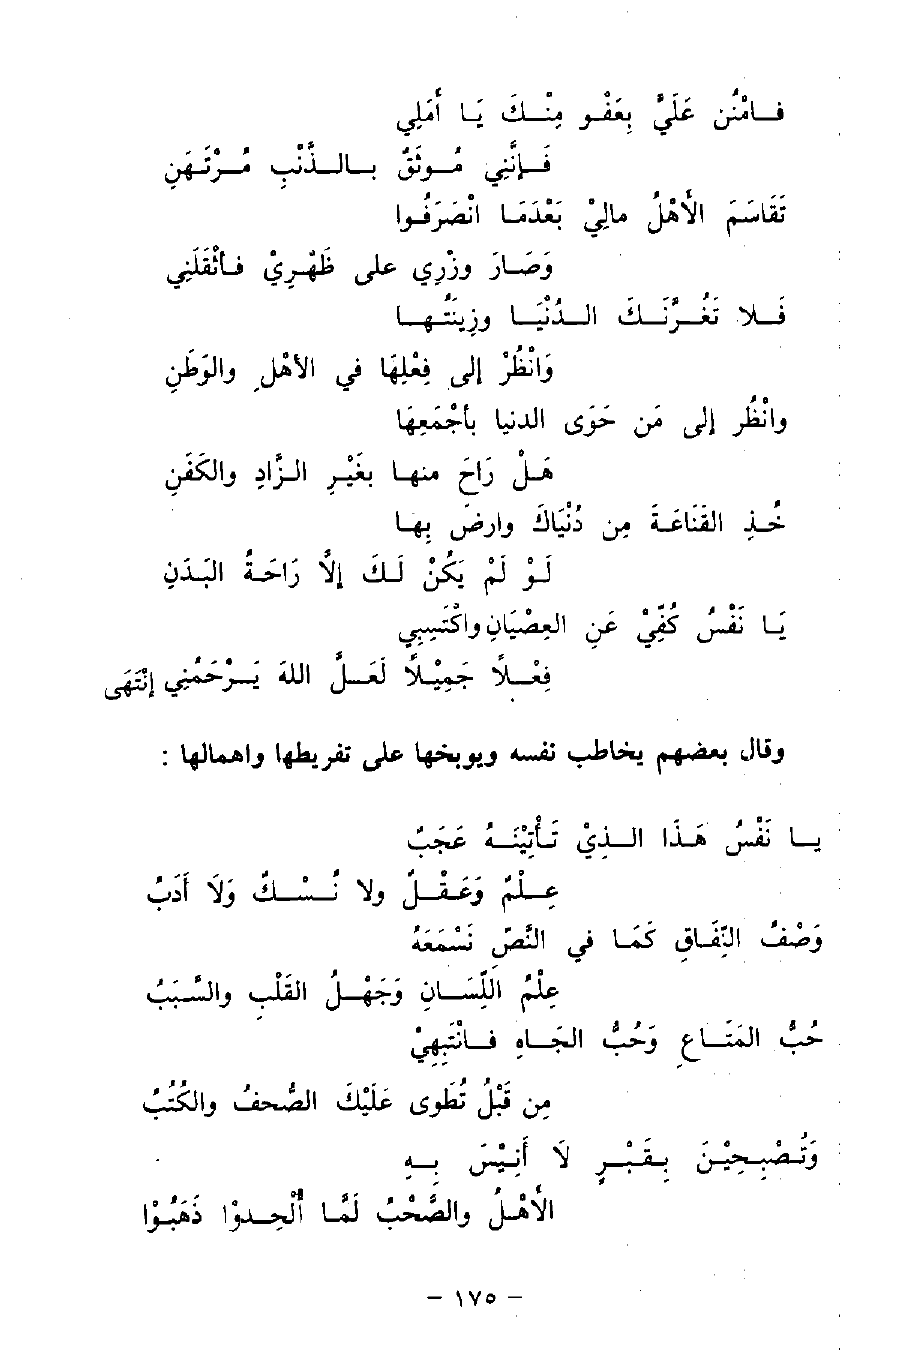 فَامْنُن عَلَيَّ بِعَفْوٍ مِنْكَ يَا أَمَلِي
فَإِنَّنِي مُوثَقٌ بالذَّنْبِ مُرْتَهَنِ
تَقَاسَمَ الأَهْلُ مالِيْ بَعْدَمَا انْصَرَفُوا
وَصَارَ وِزْرِي على ظَهْرِيْ فأَثْقَلَنِي
فَلا تَغُرَّنَكَ الدُنْيَا وزِينَتُها
وَانْظُرْ إلى فِعْلِهَا في الأهْلِ والوَطَنِ
وانْظُر إلى مَن حَوَى الدنيا بأجْمَعِهَا
هَلْ رَاحَ منها بغَيْرِ الزَّادِ والكَفَنِ
خُذِ القَنَاعَةَ مِن دُنْيَاكَ وارضَ بِها
لَوْ لَمْ يَكُنْ لَكَ إلاَّ رَاحَةُ البَدَنِ
يَا نَفْسُ كُفِّيْ عَنِ العِصْيَانِ واكْتَسِبِي
فِعْلاً جَمِيْلاً لَعَلَّ اللهَ يَرْحَمُنِي إنْتَهَى
وقال بعضهم يخاطب نفسه ويوبخها على تفريطها واهمالها :
يا نَفْسُ هَذَا الذِيْ تَأْتِيْنَهُ عَجَبُ
عِلْمٌ وَعَقْلٌ ولا نُسْكٌ وَلَا أَدَبُ
وَصْفُ النِّفَاقِ كَمَا في النَّصِّ نَسْمَعَهُ
عِلْمُ اللِّسَانِ وَجَهْلُ القَلْبِ والسَّبَبُ
حُبُّ المَتَاعِ وَحُبُّ الجَاهِ فَانْتَبِهِيْ
مِن قَبْلُ تُطْوَى عَلَيْكَ الصُّحفُ والكُتُبُ
وَتُصْبِحِيْنَ بِقَبْرٍ لَا أَنِيْسَ بِهِ
الأَهْلُ والصَّحْبُ لَمَّا أَلْحدوْا ذَهَبُوْا
– ١٧٥ –